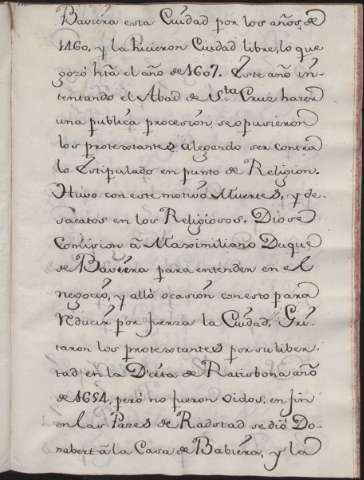 Baviera esta Ciudad por los años de
1460, y la hicieron Ciudad libre, lo que
gozó hta. el año de 1607. Este año in-
tentando el Abad de Sta. Cruz hazer
una publica procesión, se opusieron
los protestantes alegando ser contra
lo Estipulado en punto de Religion.
Huvo con este motivo Muertes, y de-
sacatos en los Religiosos. Diose
Comision â Maximiliano Duque
de Baviera para entender en el
negocio, y alló ocasión con esto para
reducir por fuerza la Ciudad. Gri-
taron los protestantes por su liber-
tad en la Dieta de Ratisbona año
de 1654, pero no fueron oidos. en fin
en las Pazes de Radstad se dió Do-
nabert â la Casa de Babiera, y la